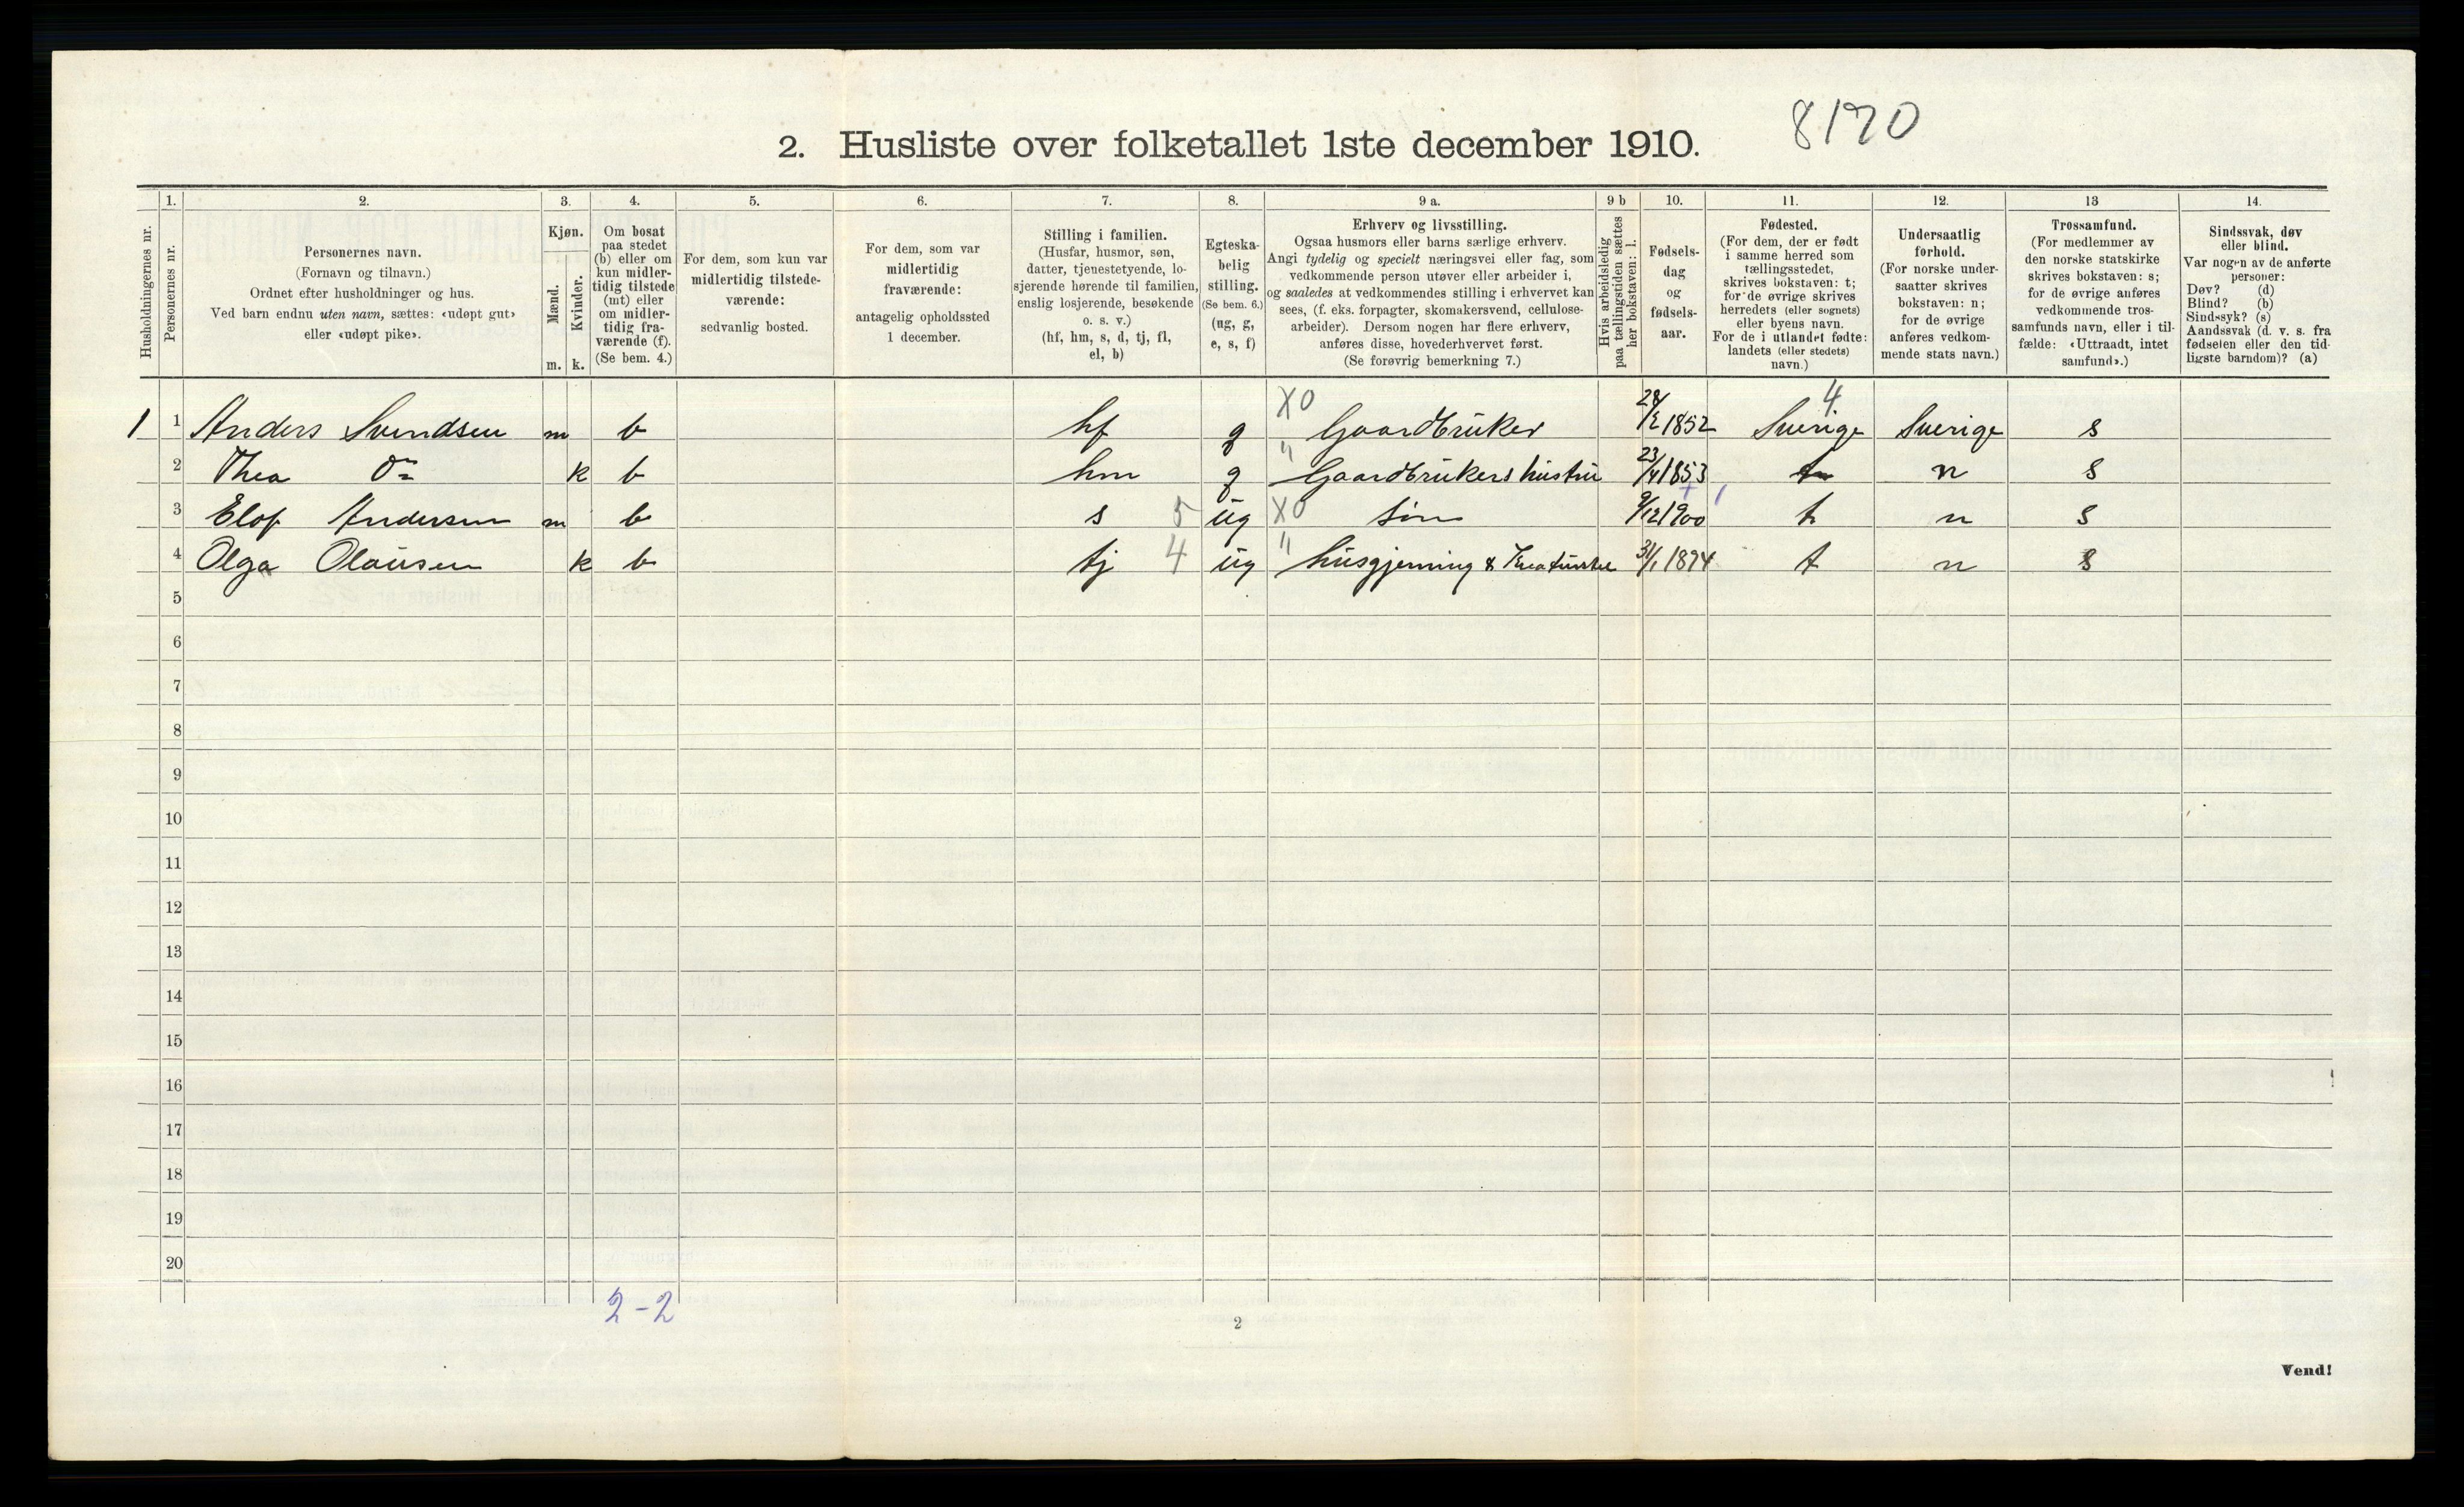 8170
2. Husliste over folketallet 1ste december 1910.
Husholdningernes nr.
1. Personernes nr.
2. Personernes navn.
(Fornavn og tilnavn.)
Ordnet efter husholdninger og hus.
Ved barn endnu uten navn, sættes: «udøpt gut»
eller «udøpt pike».
3. Kjøn.
Mænd. m.
Kvinder. k.
4. Om bosat
paa stedet
(b) eller om
kun midler-
tidig tilstede
(mt) eller
om midler-
tidig fra-
værende (f).
(Se bem. 4.)
5. For dem, som kun var
midlertidig tilstede-
værende:
sedvanlig bosted.
6. For dem, som var
midlertidig
fraværende:
antagelig opholdssted
1 december.
7. Stilling i familien.
(Husfar, husmor, søn,
datter, tjenestetyende, lo-
sjerende hørende til familien,
enslig losjerende, besøkende
o. s. v.)
(hf, hm, s, d, tj, fl,
el, b)
8. Egteska-
belig
stilling.
(Se bem. 6.)
(ug, g,
e, s, f)
9 a. Erhverv og livsstilling.
Ogsaa husmors eller barns særlige erhverv.
Angi tydelig og specielt næringsvei eller fag, som
vedkommende person utøver eller arbeider i,
og saaledes at vedkommendes stilling i erhvervet kan
sees, (f. eks. forpagter, skomakersvend, cellulose-
arbeider). Dersom nogen har flere erhverv,
anføres disse, hovederhvervet først.
(Se forøvrig bemerkning 7.)
9 b Hvis arbeidsledig
paa tællingstiden sættes
her bokstaven: l.
10. Fødsels-
dag
og
fødsels-
aar.
11. Fødested.
(For dem, der er født
i samme herred som
tællingsstedet,
skrives bokstaven: t;
for de øvrige skrives
herredets (eller sognets)
eller byens navn.
For de i utlandet fødte:
landets (eller stedets)
navn.)
12. Undersaatlig
forhold.
(For norske under-
saatter skrives
bokstaven: n;
for de øvrige
anføres vedkom-
mende stats navn.)
13 Trossamfund.
(For medlemmer av
den norske statskirke
skrives bokstaven: s;
for de øvrige anføres
vedkommende tros-
samfunds navn, eller i til-
fælde: «Uttraadt, intet
samfund».)
14. Sindssvak, døv
eller blind.
Var nogen av de anførte
personer:
Døv? (d)
Blind? (b)
Sindssyk? (s)
Aandssvak (d. v. s. fra
fødselen eller den tid-
ligste barndom)? (a)
X0 4
1 1 Anders Svendsen m b hf g Gaardbruker 28/2 1852 Sverige Sverige s
2 Thea Do k b hm g " Gaardbrukers hustru 23/4 1853 t n s
3 Elof Andersen m b s 5 ug X0 Søn 9/12 1900 t n s
4 Olga Olausen k b tj 4 ug " husgjerning & 31/1 1894 t n s
5
6
7
8
9
10
11
12
13
14
15
16
17
18
19
20
2-2
2
Vend!